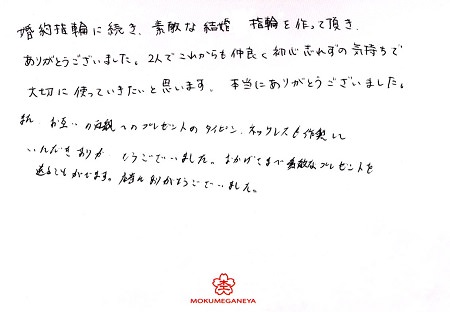 婚約指輪に続き、素敵な結婚 指輪を作って頂き、
ありがとうございました。2人でこれからも仲良く初心忘れずの気持ちで
大切に使っていきたいと思います。 本当にありがとうございました。
また お互いの両親へのプレゼントのタイピン、ネックレスも作製して
いただきありがとうございました。おかげさまで素敵なプレゼントを
送ることができます。ありがとうございました。
MOKUMEGANEYA